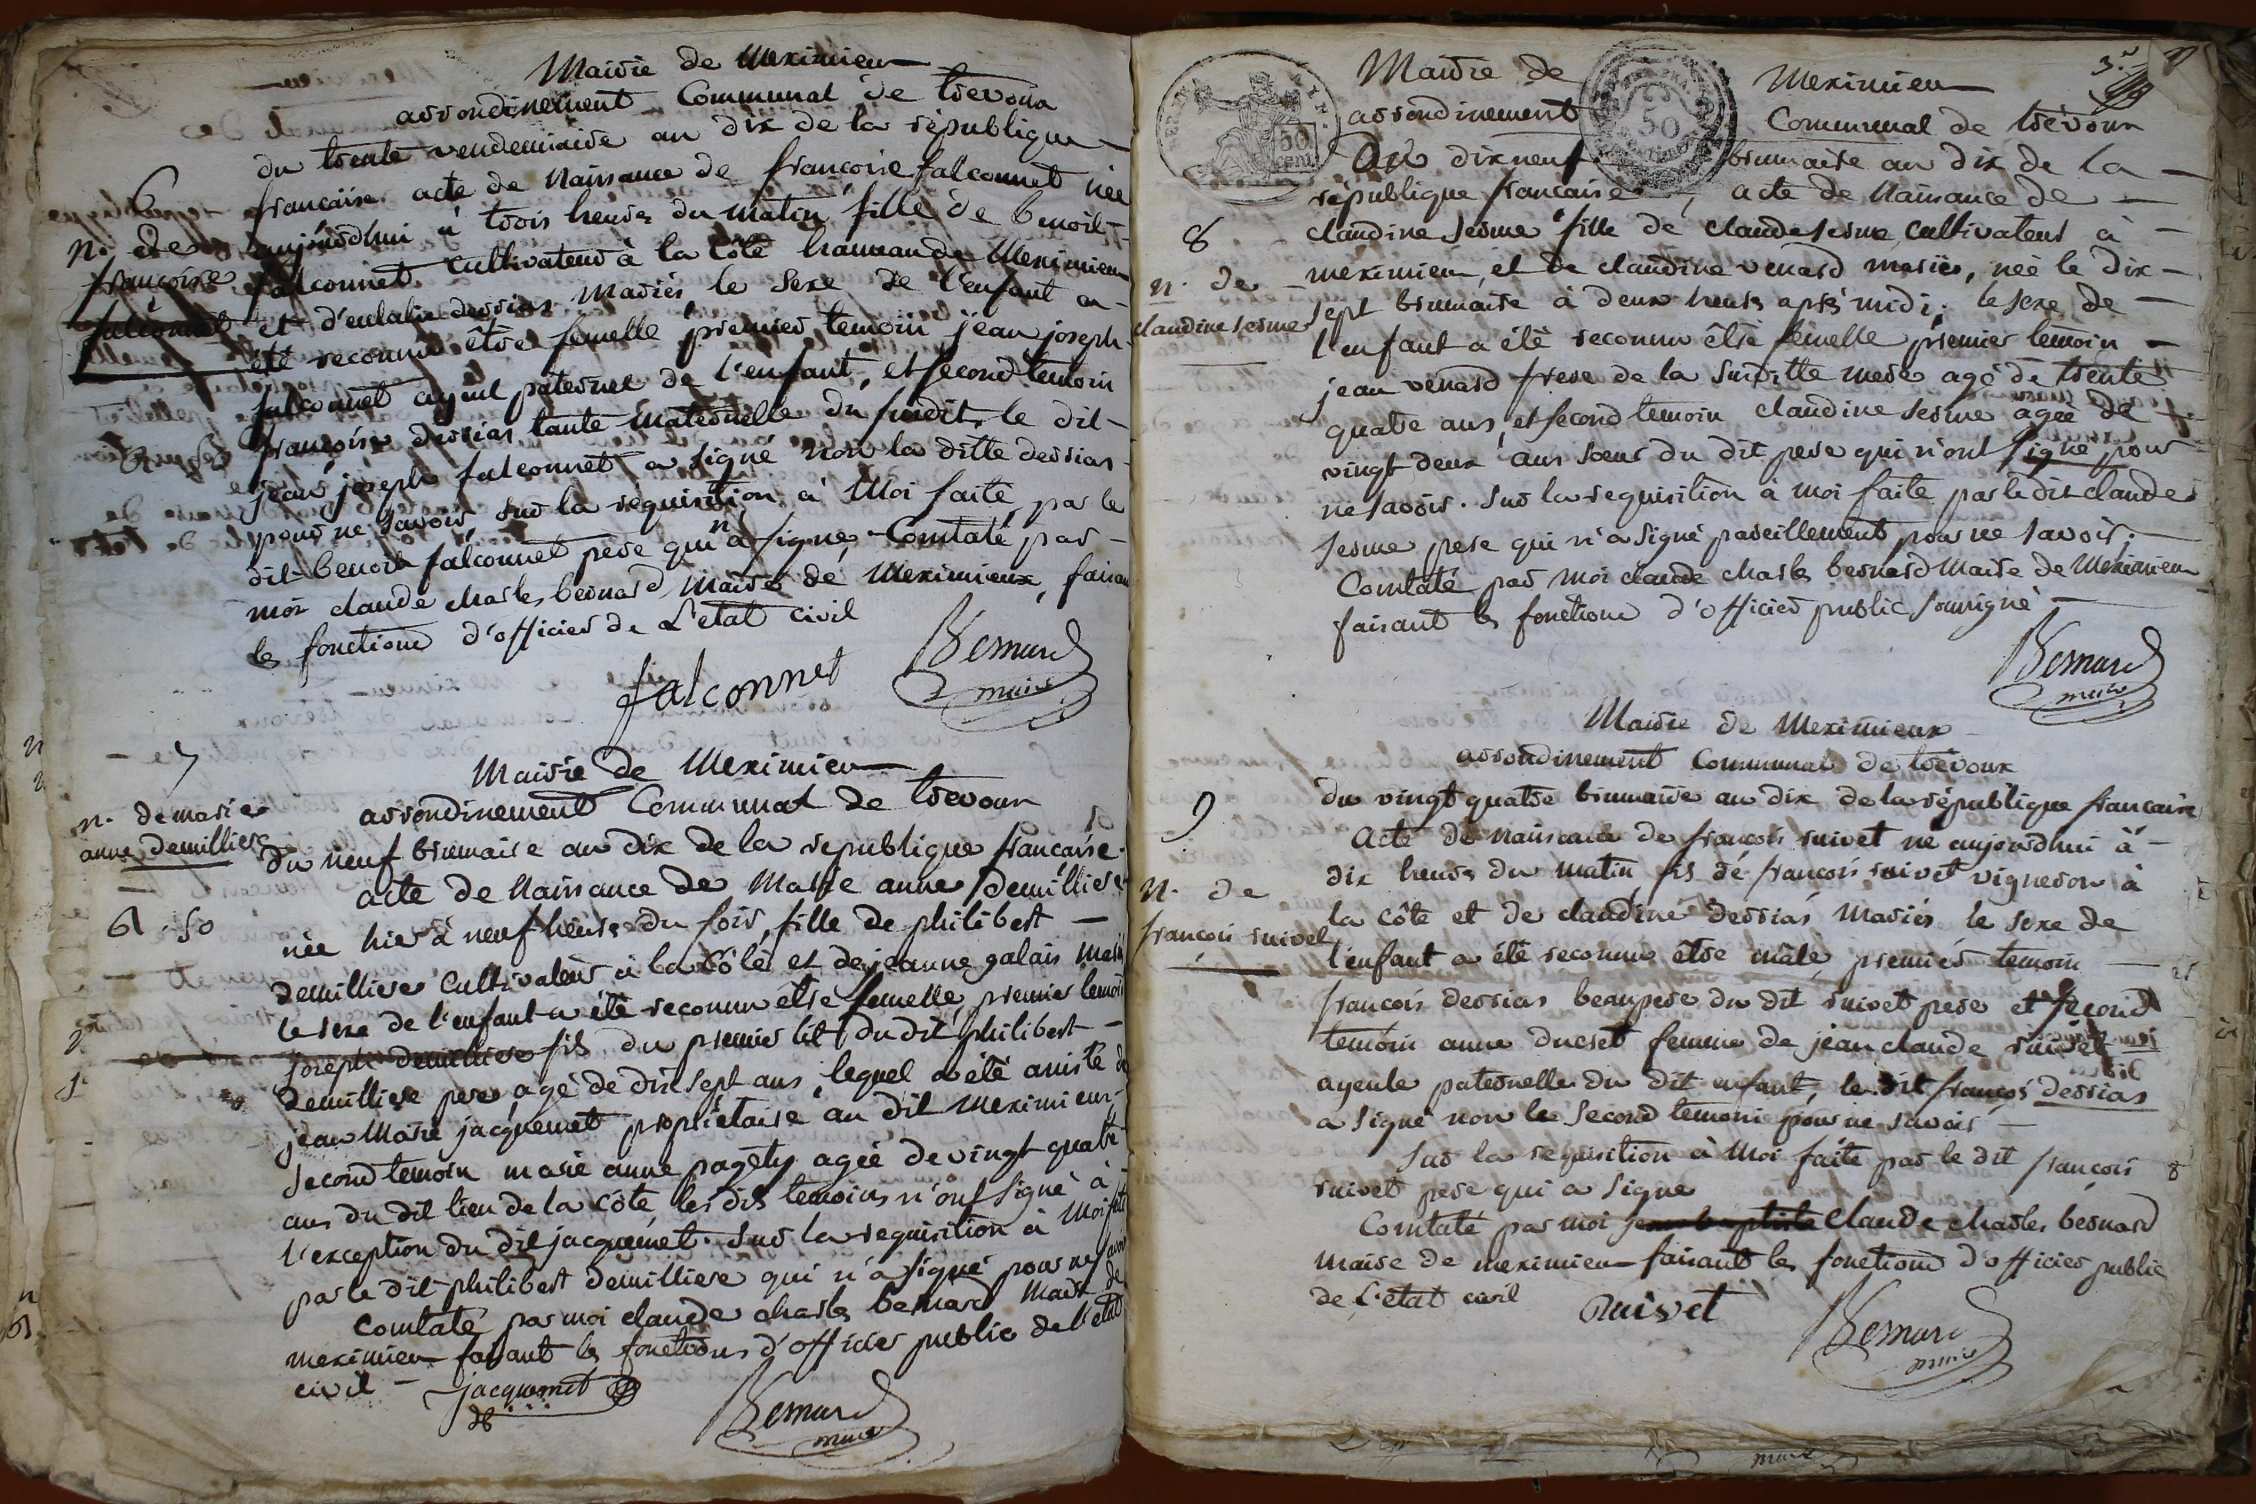 Mairie de Meximieu
arrondinement Communal de trevoux
du trente vendemiaire an dix de la république
francaise acte de Naissance de françoise falconnet née
aujourdhui à trois heures du matin fille de benoit
falconnet Cultivateur à la Côte hameau de Meximieu
et d'eulalie derrias mariés le sexe de l'enfant a
été reconnu être femelle premier temoin jean joseph
falconnet ayeul paternel de l'enfant, et second temoin
françoise derrias tante maternelle du susdit, le dit
jean joseph falconnet a signé non la ditte derrias
pour ne savoir, sur la réquisition à Moi faite par le
dit benoit falconnet père qui n'a signé, Constaté par
moi claude charles bernard maire de Meximieux, faisant
les fonctions d'officier de L'état civil
falconnet Bernard
maire
6
N. de
françoise
falconnet
7
Mairie de Meximieu
arrondinement Communal de trevoux
n. de marie
anne demilliere
du neuf brumaire an dix de la republique francaise
acte de Naissance de Marie anne demilliere
née hier à neuf heures du soir, fille de philibert
demilliere Cultivateur à la Côte et de jeanne galais mariés
le sexe de l'enfant a été reconnu être femelle, premier temoin
joseph demilliere fils du premier lit du dit philibert
demilliere pere agé de dix sept ans, lequel a été assisté de
jean Marie jacquemet propriétaire au dit meximieux
second temoin marie anne pagety agée de vingt quatre
ans du dit lieu de la Côte, les dits temoins n'ont signé à
l'exception du dit jacquemet. sur la requisition à Moi faite
par le dit philibert demilliere qui n'a signé pour ne savoir
Constaté par moi claude charles bernard Maire de
meximieu faisant les fonctions d'officier public de l'état
civil
jacquemet
Bernard
maire
Mairie de Meximieu
arrondinement Communal de trévoux
Du dix neuf brumaire an dix de la
république francaise, acte de Naissance de
8
claudine serme fille de claude serme Cultivateur à
meximieu, et de claudine venard mariés, née le dix
n. de
claudine serme
sept brumaire à deux heures après midi, le sexe de
l'enfant a été reconnu être femelle premier temoin
jean venard frere de la susditte mere agé de trente
quatre ans, et second temoin claudine serme agée de
vingt deux ans soeur du dit pere qui n'ont signé pour
ne savoir. Sur la requisition à moi faite par le dit claude
serme pere qui n'a signé pareillement pour ne savoir.
Constaté par moi claude charles bernard Maire de Meximieu
faisant les fonctions d'officier public soussigné
Bernard
maire
Mairie de Meximieux
arrondinement Communal de trévoux
9
du vingt quatre brumaire an dix de la république francaise
Acte de naissance de françois ruivet né aujourdhui à
dix heures du matin fils de françois ruivet vigneron à
N. de
françois ruivet
la Côte et de claudine derrias Mariés le sexe de
l'enfant a été reconnu être mâle, premier temoin
françois derrias beaupere du dit ruivet pere et second
temoin anne ducret femme de jean claude ruivet
ayeule paternelle du dit enfant, le dit françois derrias
a signé non le second temoin pour ne savoir
Sur la requisition à Moi faite par le dit françois
ruivet pere qui a signé
Constaté par moi jean baptiste Claude charles bernard
maire de meximieu faisant les fonctions d'officier public
de L'état civil
Ruivet
Bernard
maire